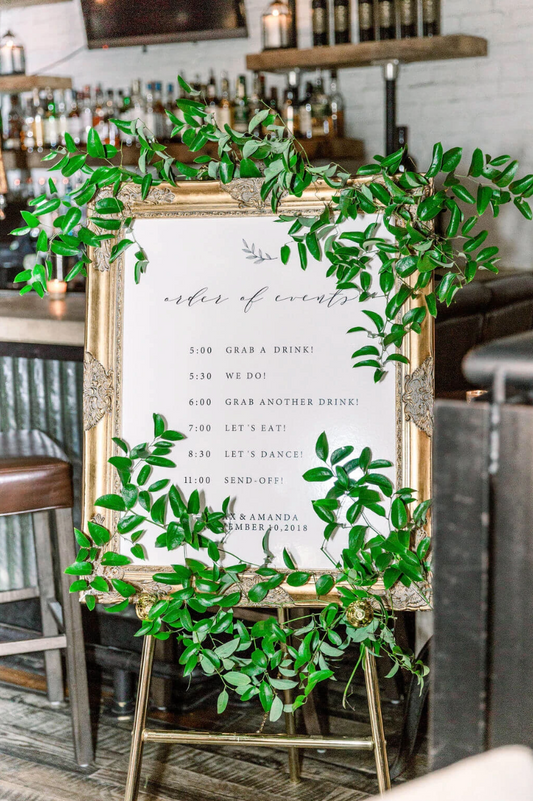 order of events
5:00 GRAB A DRINK!
5:30 WE DO!
6:00 GRAB ANOTHER DRINK!
7:00 LET'S EAT!
8:30 LET'S DANCE!
11:00 SEND-OFF!
& AMANDA
10,2018